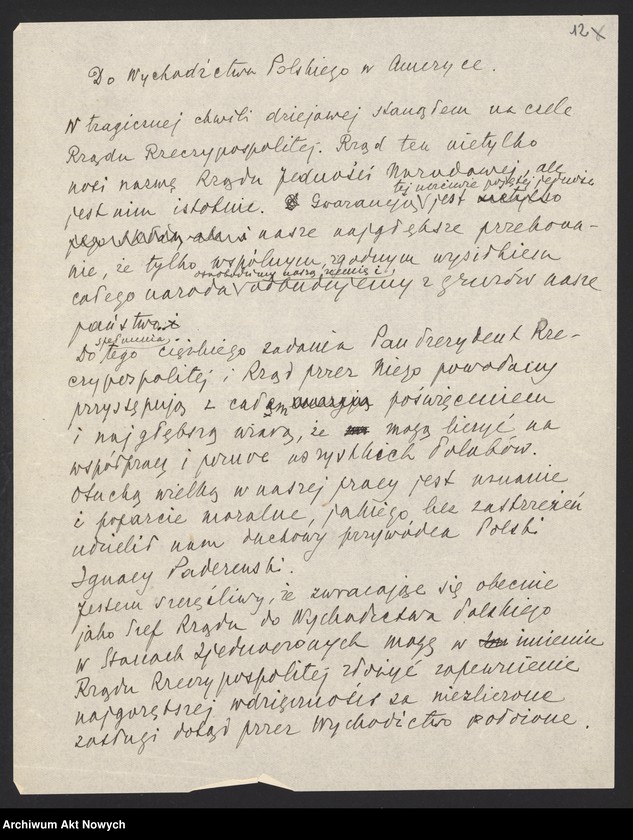 12
Do Wychodźctwa Polskiego w Ameryce.
W tragicznej chwili dziejowej stanąłem na czele
Rządu Rzeczypospolitej. Rząd ten nietylko
nosi nazwę Rządu Jedności Narodowej, ale
jest nim istotnie. Gwarancją tej wcieleniu jest
nasze najgłębsze przekona-
nie, że tylko wspólnym, zgodnym wysiłkiem
całego narodu oswobodzimy naszą ziemię i odbudujemy z gruzów nasze
państwo.
Do spełnienia tego ciężkiego zadania Pan Prezydent Rze-
czypospolitej i Rząd przez Niego powołany
przystępują z całem poświęceniem
i najgłębszą wiarą, że mogą liczyć na
współpracę i pomoc wszystkich Polaków.
Otuchą wielką w naszej pracy jest uznanie
i poparcie moralne, jakiego bez zastrzeżeń
udzielił nam duchowy przywódca Polski
Ignacy Paderewski.
Jestem szczęśliwy, że zwracając się obecnie
jako Szef Rządu do Wychodźctwa Polskiego
w Stanach Zjednoczonych mogę w imieniu
Rządu Rzeczypospolitej złożyć zapewnienie
najgorętszej wdzięczności za niezliczone
zasługi dotąd przez Wychodźctwo położone.
Archiwum Akt Nowych